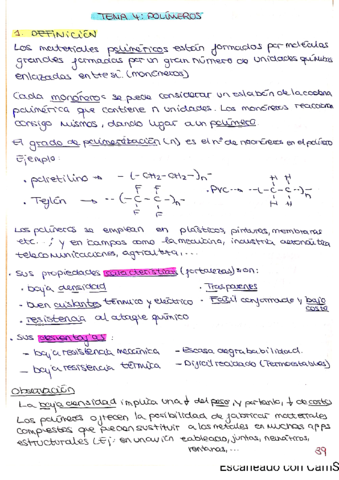 TEMA 4: POLÍMEROS
1. DEFINICIÓN
Los materiales poliméricos están formados por moléculas
grandes formadas por un gran número de unidades químicas
enlazadas entre sí. (monómeros)
Cada monómero se puede considerar un eslabón de la cadena
polimérica que contiene n unidades. Los monómeros reaccionan
consigo mismos, dando lugar a un polímero
El grado de polimerización (n) es el nº de monómeros en el polímero
Ejemplo:
· polietileno → -(-CH2-CH2-)n-
· Teflón → -(-C-C-)n-
F F
F F
· PVC → -(-C-C-)n-
H H
Los polímeros se emplean en plásticos, pinturas, membranas
etc... ; y en campos como la medicina, industria aeronáutica,
telecomunicaciones, agricultura, ...
· Sus propiedades características (fortalezas) son:
· baja densidad
· Transparentes
· buen aislantes térmico y eléctrico
· Fácil conformado y bajo
coste
· resistencia al ataque químico
· Sus desventajas:
- baja resistencia mecánica
- Escasa degradabilidad.
- baja resistencia térmica
- Difícil reciclado (Termoestables)
Observación
La baja densidad implica una ↓ del peso, y por tanto, ↓ de coste
Los polímeros ofrecen la posibilidad de fabricar materiales
compuestos que pueden sustituir a los metales en muchas apps
estructurales (Ej: en un avión tableros, juntas, neumáticos,
ventanas, ...
39
Escaneado con CamS